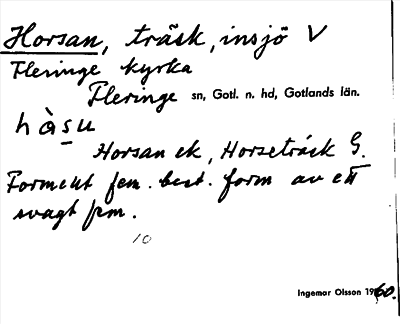 Horsan, träsk, insjö V
Fleringe kyrka
Fleringe sn, Gotl. n. hd, Gotlands län.
hàsu
Horsan ek, Horseträsk G.
Formellt fem. best. form av ett
svagt fem.
10
Ingemar Olsson 1960.